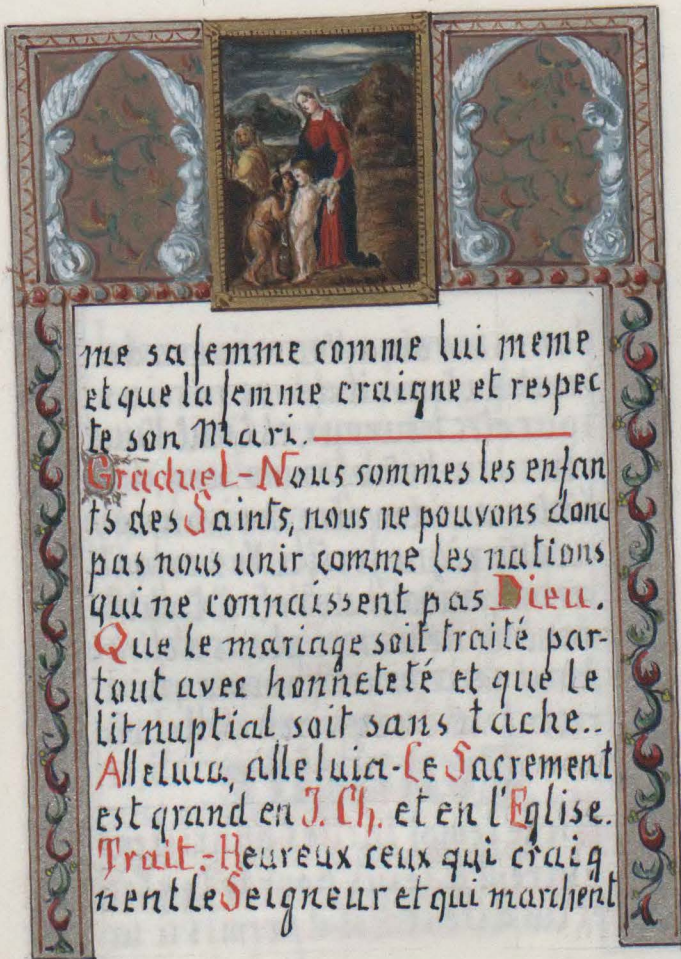 me sa femme comme lui meme
et que la femme craigne et respec
te son Mari.
Graduel-Nous sommes les enfan
ts des Saints, nous ne pouvons donc
pas nous unir comme les nations
qui ne connaissent pas Dieu.
Que le mariage soit traité par-
tout avec honneteté et que le
lit nuptial soit sans tache..
Alleluia, alleluia-Le Sacrement
est grand en J. Ch. et en l'Eglise.
Trait.-Heureux ceux qui craig
nent le Seigneur et qui marchent